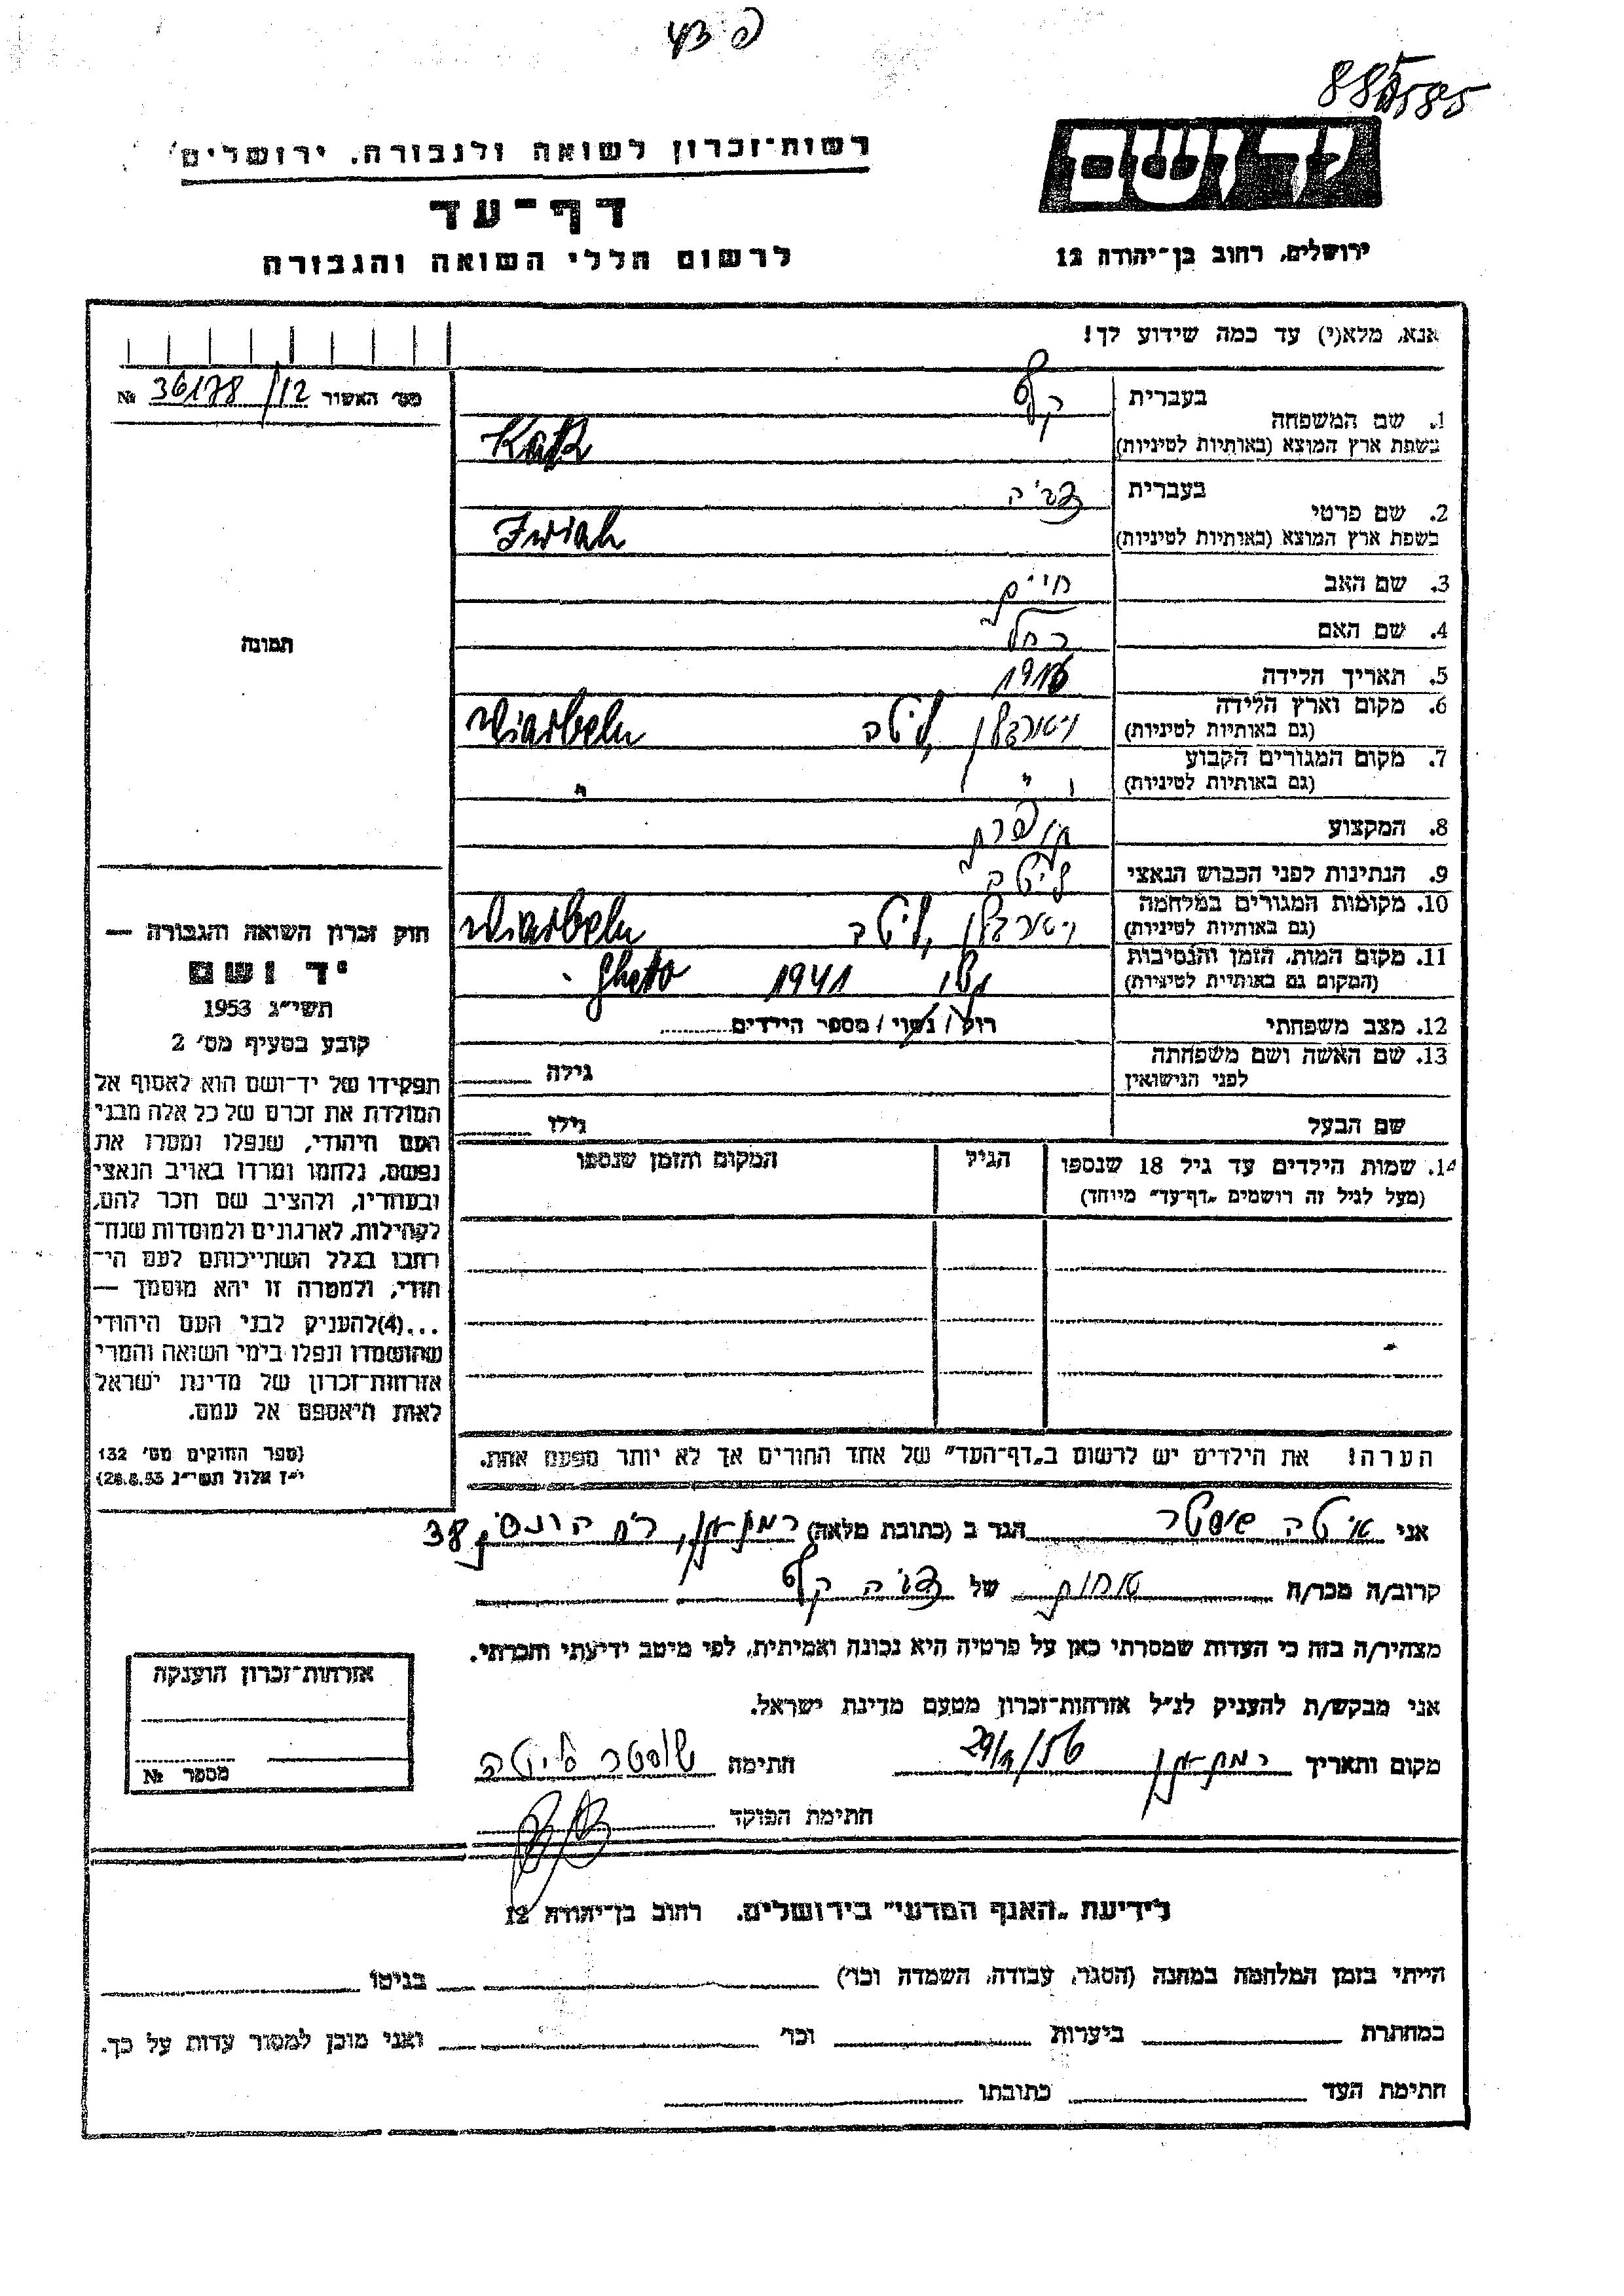 פ צץ
885585
יד ושם
רשות־זכרון לשואה ולגבורה, ירושלים
דף־עד
לרשום חללי השואה והגבורה
ירושלים, רחוב בן־יהודה 12
אנא, מלא(י) עד כמה שידוע לך!
מס׳ האשור 36178/12 №
בעברית
1. שם המשפחה
כץ
בשפת ארץ המוצא (באותיות לטיניות) Katz
בעברית צביה
2. שם פרטי
בשפת ארץ המוצא (באותיות לטיניות) Zwiah
3. שם האב חיים
4. שם האם רחל
תמונה
5. תאריך הלידה 1916
6. מקום וארץ הלידה
(גם באותיות לטיניות) ליטה Wiarbeln
7. מקום המגורים הקבוע
(גם באותיות לטיניות) " "
8. המקצוע תופרת
9. הנתינות לפני הכבוש הנאצי ליטה
10. מקומות המגורים במלחמה
(גם באותיות לטיניות) ליטה Wiarbeln
11. מקום המות, הזמן והנסיבות
(המקום גם באותיות לטיניות) 1941 Gheto
12. מצב משפחתי רוק / נשוי / מספר הילדים
13. שם האשה ושם משפחתה
לפני הנישואין גילה
שם הבעל גילו
14. שמות הילדים עד גיל 18 שנספו הגיל המקום והזמן שנספו
(מעל לגיל זה רושמים „דף־עד״ מיוחד)
חוק זכרון השואה והגבורה —
יד ושם
תשי״ג 1953
קובע בסעיף מס׳ 2
תפקידו של יד־ושם הוא לאסוף אל
המולדת את זכרם של כל אלה מבני
העם היהודי, שנפלו ומסרו את
נפשם, נלחמו ומרדו באויב הנאצי
ובעוזריו, ולהציב שם וזכר להם,
לקהילות, לארגונים ולמוסדות שנח־
רבו בגלל השתייכותם לעם הי־
הודי, ולמטרה זו יהא מוסמך —
...(4)להעניק לבני העם היהודי
שהושמדו ונפלו בימי השואה והמרי
אזרחות־זכרון של מדינת ישראל
לאות היאספם אל עמם.
(ספר החוקים מס׳ 132
י״ז אלול תשי״ג 28.8.53)
הערה! את הילדים יש לרשום ב„דף־העד״ של אחד ההורים אך לא יותר מפעם אחת.
אני איטה שוסטר הגר ב (כתובת מלאה) רמת גן, רח׳ 38
קרוב/ה מכר/ה אחות של צביה כץ
מצהיר/ה בזה כי העדות שמסרתי כאן על פרטיה היא נכונה ואמיתית, לפי מיטב ידיעתי והכרתי.
אני מבקש/ת להעניק לנ״ל אזרחות־זכרון מטעם מדינת ישראל.
מקום ותאריך רמת גן חתימה שוסטר איטה
חתימת הפוקד
אזרחות־זכרון הוענקה
מספר №
לידיעת „האגף המדעי״ בירושלים, רחוב בן־יהודה 12
הייתי בזמן המלחמה במחנה (הסגר, עבודה, השמדה וכו׳) בגיטו
במחתרת ביערות וכו׳ ואני מוכן למסור עדות על כך.
חתימת העד כתובתו